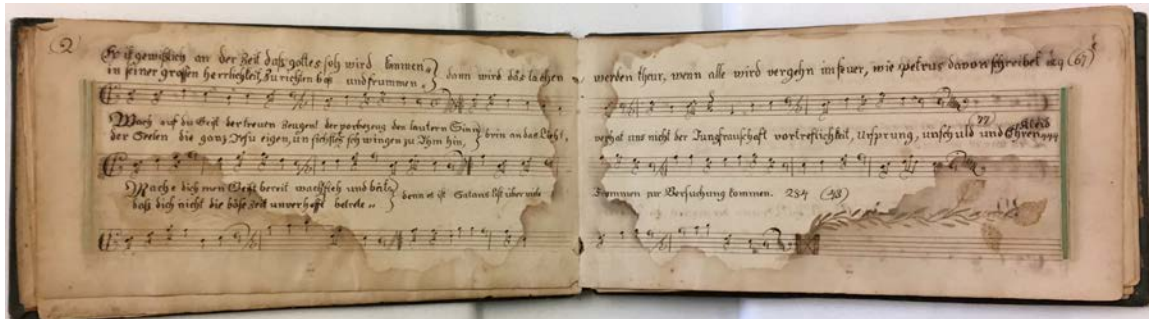 (2
Es ist gewißlich an der Zeit daß gottes soh wird kommen
in seiner grossen herrlichkeit, zu richten bös und frummen. } dann wird das lachen werden theur, wenn alle wird vergehn im feuer, wie petrus davon schreibet (67)
Wach auf du Geist der treuen Zeugen! der vorbezeug den lautern Sinn
der Seelen die ganz Jesu eigen, un sichtlich schwingen zu Ihm hin, } brin an das Licht, uns nicht der Jungfrauschaft vortreflichkeit, Ursprung, unschuld und Ehren (77)
Mache dich men Geist bereit wache fleh und bäte
daß dich nicht die böse Zeit unverhoft betrete } denn es ist Satans list über viele Frommen zur Versuchung kommen. 284 (43)